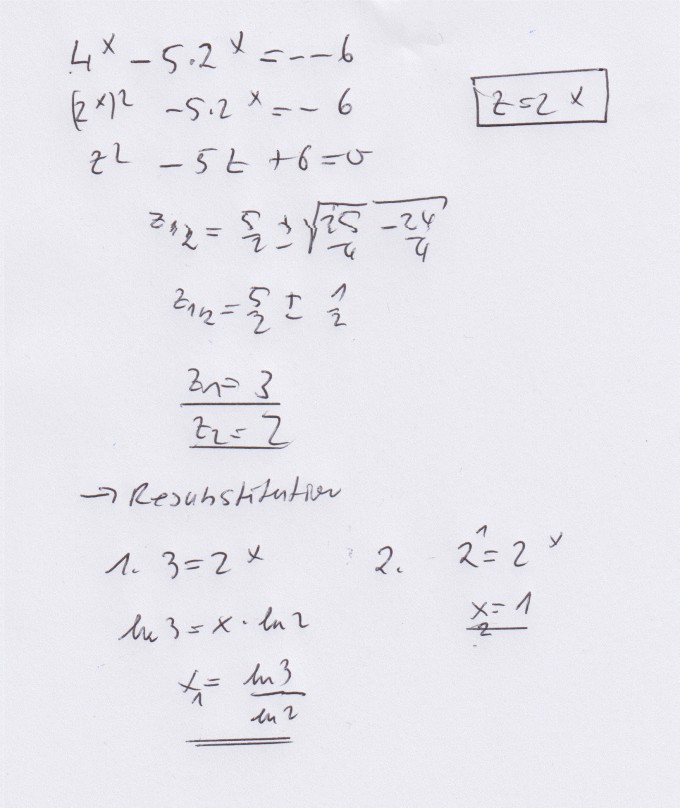 4^x - 5·2^x = -- 6
(2^x)² - 5·2^x = - 6
z = 2^x
z² - 5z + 6 = 0
z₁,₂ = 5/2 ± √(25/4 - 24/4)
z₁,₂ = 5/2 ± 1/2
z₁ = 3
z₂ = 2
→ Resubstitution
1. 3 = 2^x
ln 3 = x · ln 2
x₁ = ln 3 / ln 2
2. 2^1 = 2^x
x₂ = 1